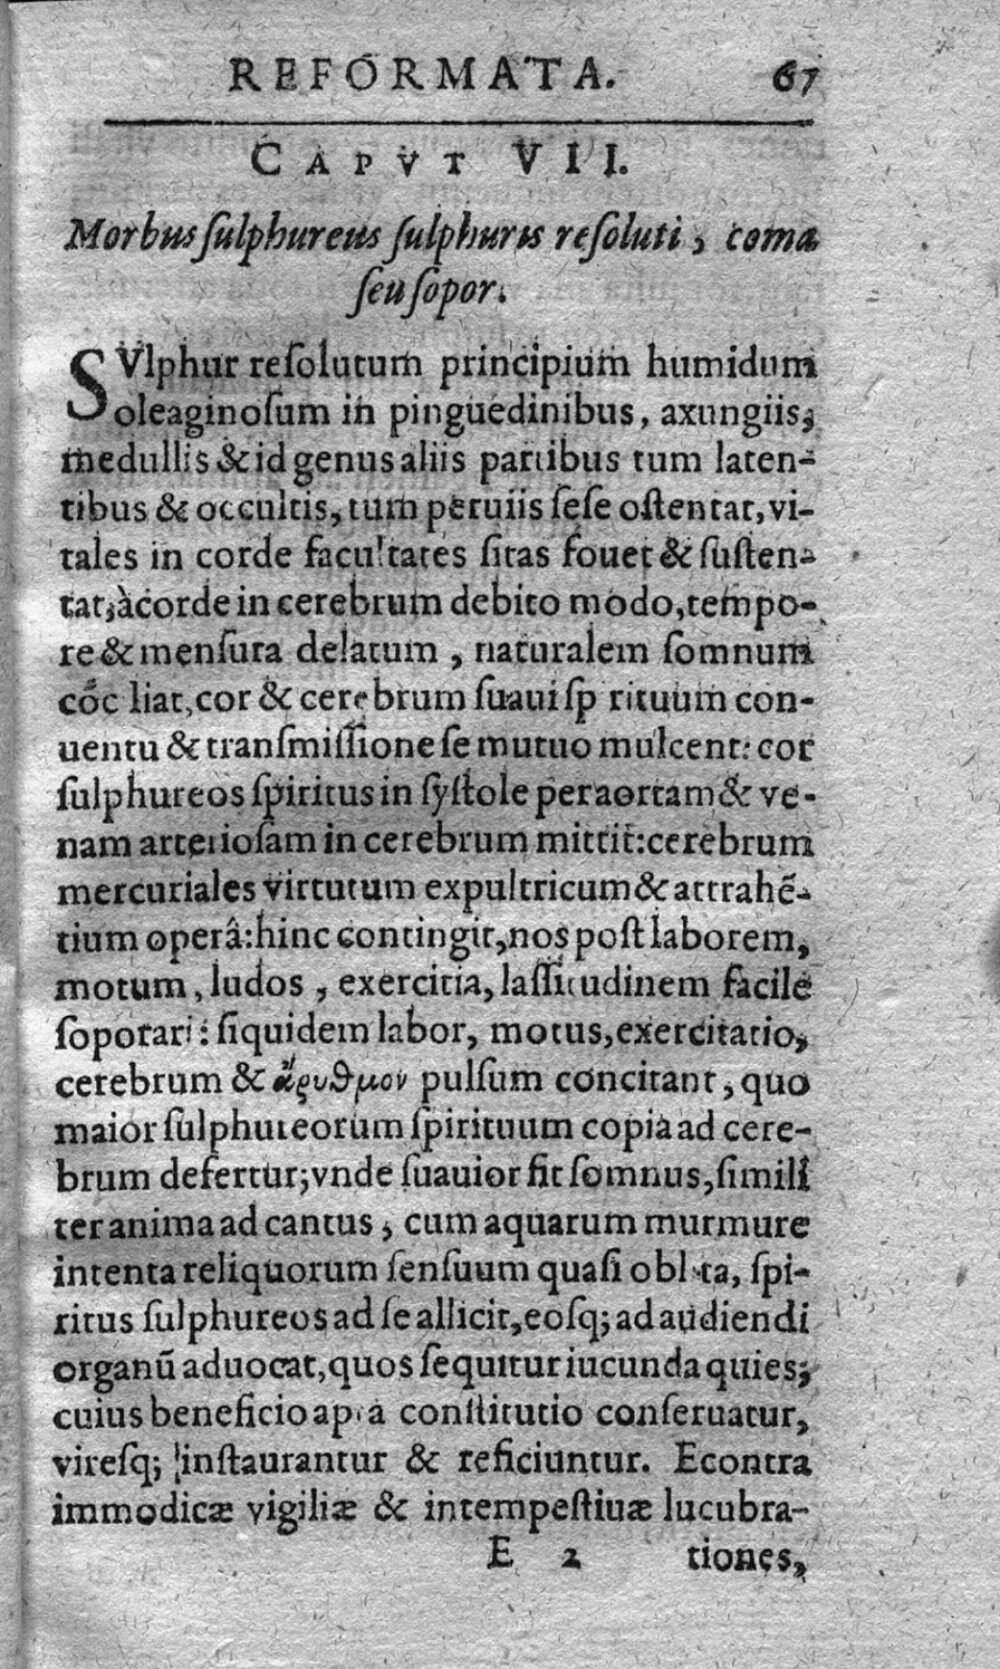 REFORMATA. 67
CAPVT VII.
Morbus ſulphureus ſulphuris reſoluti, coma
ſeu ſopor.
SVlphur reſolutum principium humidum
oleaginoſum in pinguedinibus, axungiis,
medullis & id genus aliis partibus tum laten-
tibus & occultis, tum peruiis ſeſe oſtentat, vi-
tales in corde facultates ſitas fouet & ſuſten-
tat, à corde in cerebrum debito modo, tempo-
re & menſura delatum, naturalem ſomnum
cõc liat, cor & cerebrum ſuaui ſp rituum con-
uentu & tranſmiſſione ſe mutuo mulcent: cor
ſulphureos ſpiritus in ſyſtole per aortam & ve-
nam arterioſam in cerebrum mittit: cerebrum
mercuriales virtutum expultricum & attrahẽ-
tium operâ: hinc contingit, nos poſt laborem,
motum, ludos, exercitia, laſſitudinem facile
ſoporari: ſiquidem labor, motus, exercitatio,
cerebrum & ἄρυθμον pulſum concitant, quo
maior ſulphureorum ſpirituum copia ad cere-
brum defertur; vnde ſuauior fit ſomnus, ſimili
ter anima ad cantus, cum aquarum murmure
intenta reliquorum ſenſuum quaſi obl ta, ſpi-
ritus ſulphureos ad ſe allicit, eoſq; ad audiendi
organũ aduocat, quos ſequitur iucunda quies;
cuius beneficio apta conſtitutio conſeruatur,
vireſq; inſtaurantur & reficiuntur. Econtra
immodicæ vigiliæ & intempeſtiuæ lucubra-
E 2 tiones,